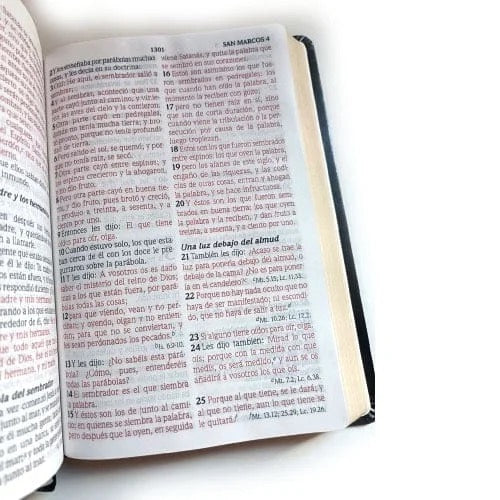 adre y los herma
a llamarle.
del sembrador
1301
SAN MARCOS 4
2 Y les enseñaba por parábolas muchas
cosas, y les decía en su doctrina:
3 Oíd: He aquí, el sembrador salió a
4 y al sembrar, aconteció que una
parte cayó junto al camino, y vinie-
ron las aves del cielo y la comieron.
5 Otra parte cayó en pedregales,
donde no tenía mucha tierra; y bro-
tó pronto, porque no tenía profundi-
dad de tierra.
6 Pero salido el sol, se quemó; y por-
que no tenía raíz, se secó.
7 Otra parte cayó entre espinos; y
los espinos crecieron y la ahogaron,
y no dio fruto.
8 Pero otra parte cayó en buena tie-
rra, y dio fruto, pues brotó y creció,
y produjo a treinta, a sesenta, y a
ciento por uno.
9 Entonces les dijo: El que tiene
oídos para oír, oiga.
10 Cuando estuvo solo, los que esta-
ban cerca de él con los doce le pre-
guntaron sobre la parábola.
11 Y les dijo: A vosotros os es dado
saber el misterio del reino de Dios;
mas a los que están fuera, por pará-
bolas todas las cosas;
12 para que viendo, vean y no per-
ciban; y oyendo, oigan y no entien-
dan; para que no se conviertan, y
les sean perdonados los pecados.
Is. 6.9-10.
13 Y les dijo: ¿No sabéis esta pará-
bola? ¿Cómo, pues, entenderéis
todas las parábolas?
14 El sembrador es el que siembra
la palabra.
15 Y éstos son los de junto al cami-
no: en quienes se siembra la palabra,
pero después que la oyen, en seguida
viene Satanás, y quita la palabra que
se sembró en sus corazones.
16 Estos son asimismo los que fue-
ron sembrados en pedregales: los
que cuando han oído la palabra, al
momento la reciben con gozo;
17 pero no tienen raíz en sí, sino
que son de corta duración, porque
cuando viene la tribulación o la per-
secución por causa de la palabra,
luego tropiezan.
18 Estos son los que fueron sembrados
entre espinos: los que oyen la palabra,
19 pero los afanes de este siglo, y el
engaño de las riquezas, y las codi-
cias de otras cosas, entran y ahogan
la palabra, y se hace infructuosa.
20 Y éstos son los que fueron sem-
brados en buena tierra: los que oyen
la palabra y la reciben, y dan fruto a
treinta, a sesenta, y a ciento por uno.
Una luz debajo del almud
21 También les dijo: ¿Acaso se trae la
luz para ponerla debajo del almud, o
debajo de la cama? ¿No es para poner-
la en el candelero?
Mt. 5.15; Lc. 11.33.
22 Porque no hay nada oculto que no
haya de ser manifestado; ni escondi-
do, que no haya de salir a luz.
Mt. 10.26; Lc. 12.2.
23 Si alguno tiene oídos para oír, oiga.
24 Les dijo también: Mirad lo que
oís; porque con la medida con que
medís, os será medido, y aun se os
añadirá a vosotros los que oís.
Mt. 7.2; Lc. 6.38.
25 Porque al que tiene, se le dará; y
al que no tiene, aun lo que tiene se
le quitará.
Mt. 13.12; 25.29; Lc. 19.26.